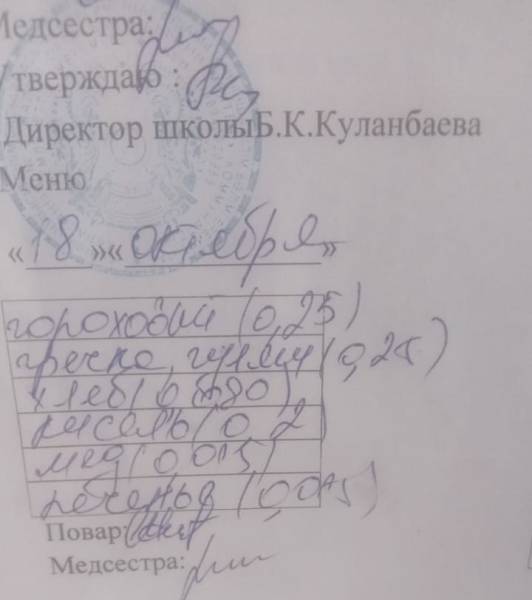 Медсестра:
тверждаю :
Директор школыБ.К.Куланбаева
Меню
«18»«октября»
гороховый (0,25)
гречка, гуляш (0,25)
хлеб (
кисель (0,2)
мед (0,015)
печенья (0,015)
Повар:
Медсестра: